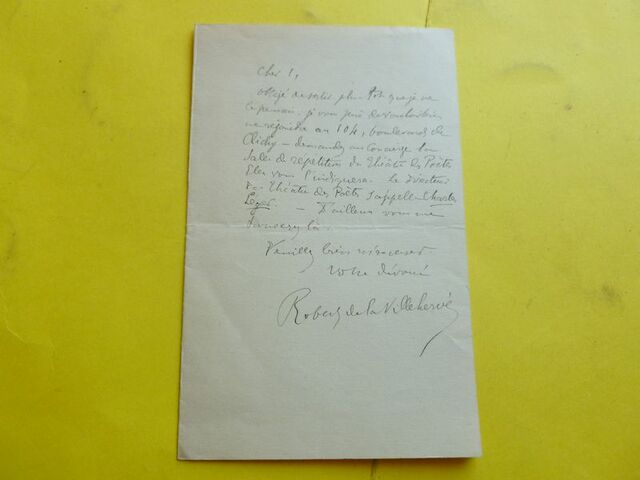 Cher 
obligé de sortir plus tôt que je ne
le pensais, je vous prie de vouloir bien
me rejoindre au 104, boulevard de
Clichy – demandez au concierge la
salle de repetition du Théâtre des Poètes
Elle vous l'indiquera. Le directeur
du Théâtre des Poètes s'appelle Charles
Léger. – D'ailleurs vous me
trouverez là.
Veuillez bien
votre dévoué
Robert de la Villehervé